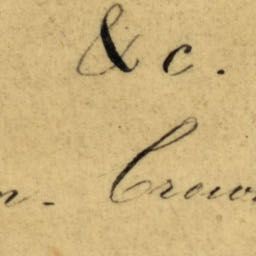 &c.
n. Crow